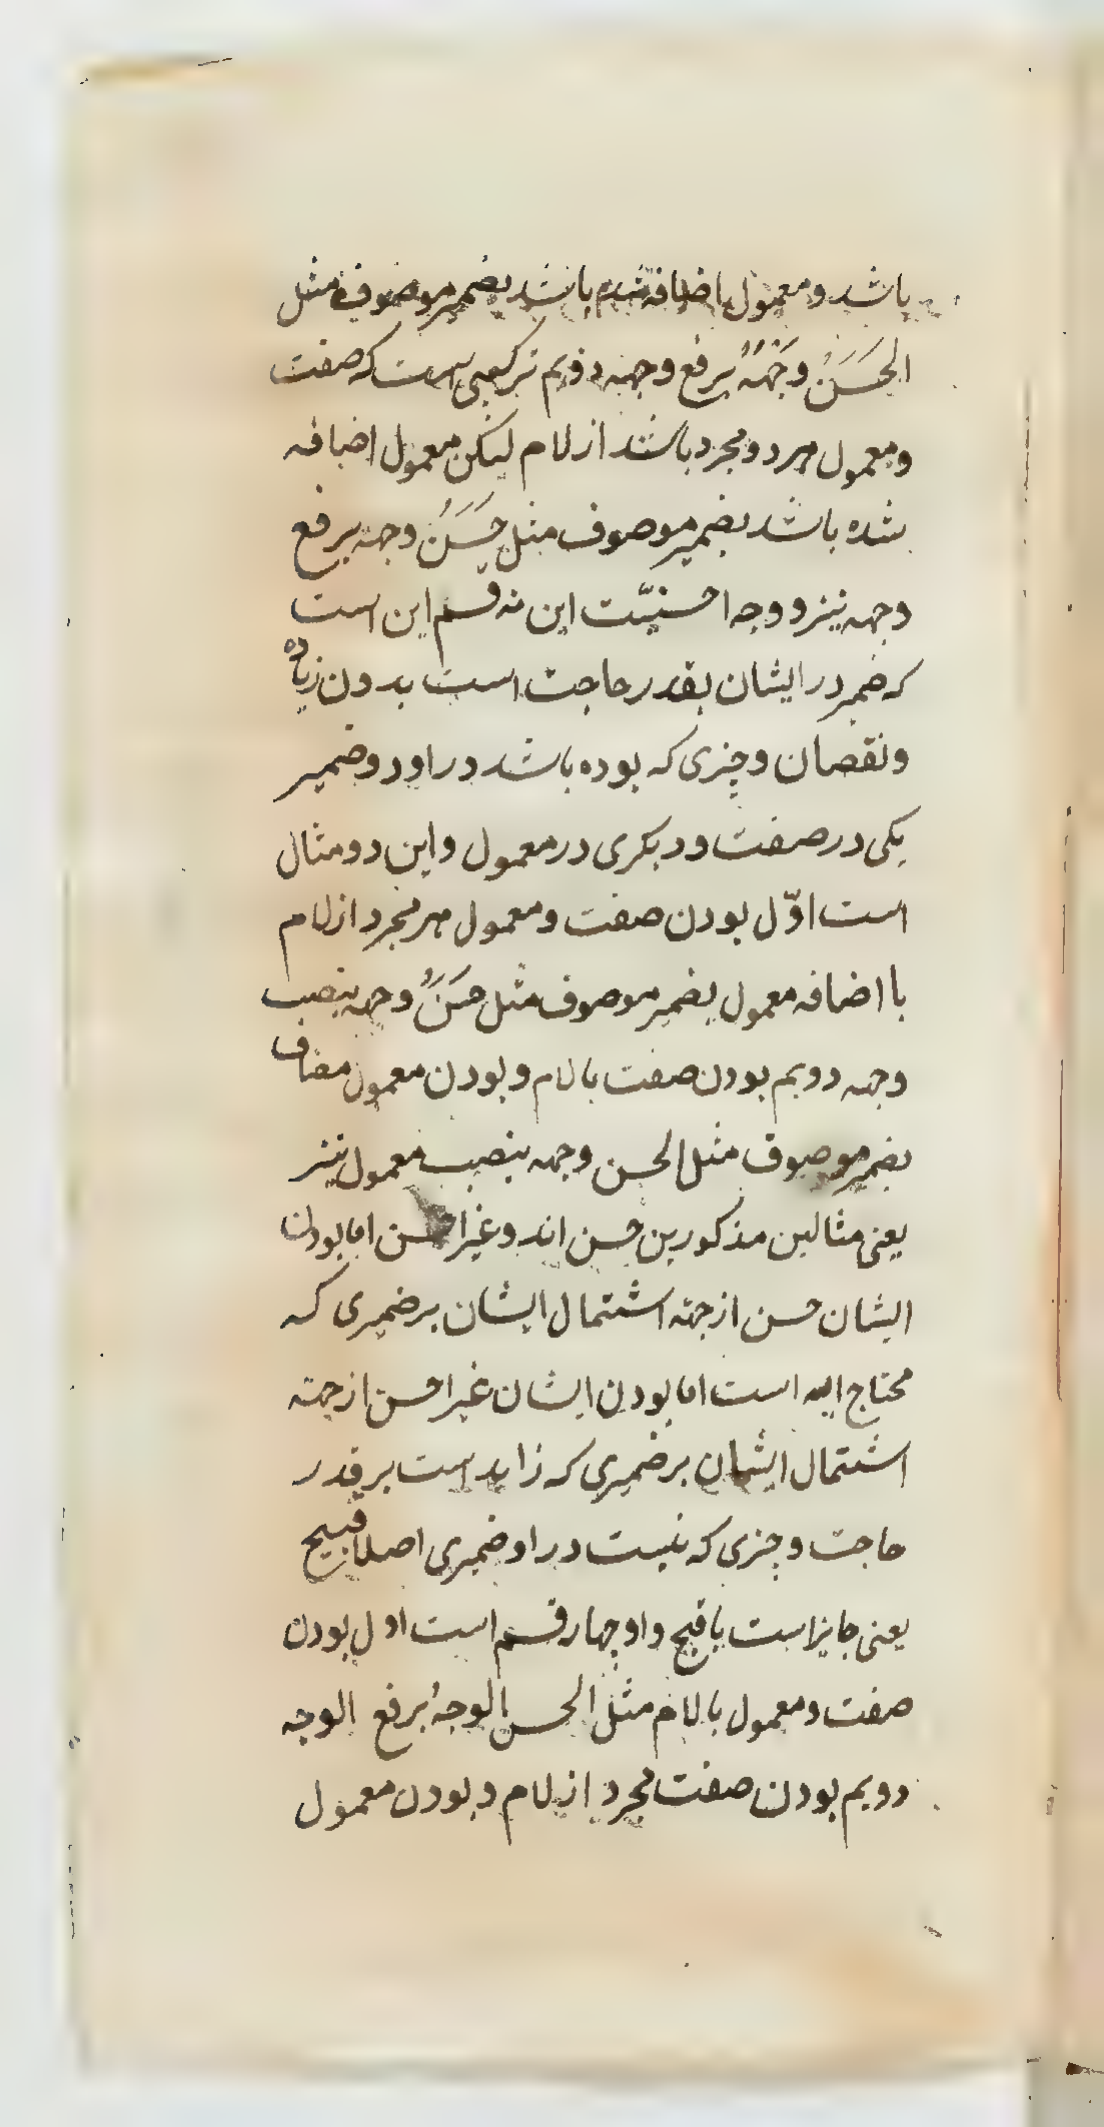 باشد و معمول با اضافه شده باشد بضمیر موصوف مثل
الحَسَنُ وَجْهُهُ برفع وجهه دویم ترکیبی است که صفت
و معمول هر دو مجرد باشند از لام لیکن معمول اضافه
شده باشد بضمیر موصوف مثل حَسَنُ وجهه برفع
وجهه نیز و وجه احسنیّت این نه قسم این است
که ضمیر در ایشان بقدر حاجت است بدون زیاده
و نقصان و چیزی که بوده باشد در او دو ضمیر
یکی در صفت و دیگری در معمول و این دو مثال
است اوّل بودن صفت و معمول هر مجرد از لام
با اضافه معمول بضمیر موصوف مثل حَسَنٌ وجهه بنصب
وجهه دویم بودن صفت بالام و بودن معمول مضاف
بضمیر موصوف مثل الحسن وجهه بنصب معمول نیز
یعنی مثالین مذکورین حسن اند و غیر احسن اما بودن
ایشان حسن از جهته اشتمال ایشان بر ضمیری که
محتاج الیه است اما بودن ایشان غیر احسن از جهته
اشتمال ایشان بر ضمیری که زاید است بر قدر
حاجت و چیزی که نیست در او ضمیری اصلا قبیح
یعنی جایز است با قبح و او چهار قسم است اول بودن
صفت و معمول بالام مثل الحسن الوجهُ برفع الوجه
دویم بودن صفت مجرد از لام و بودن معمول